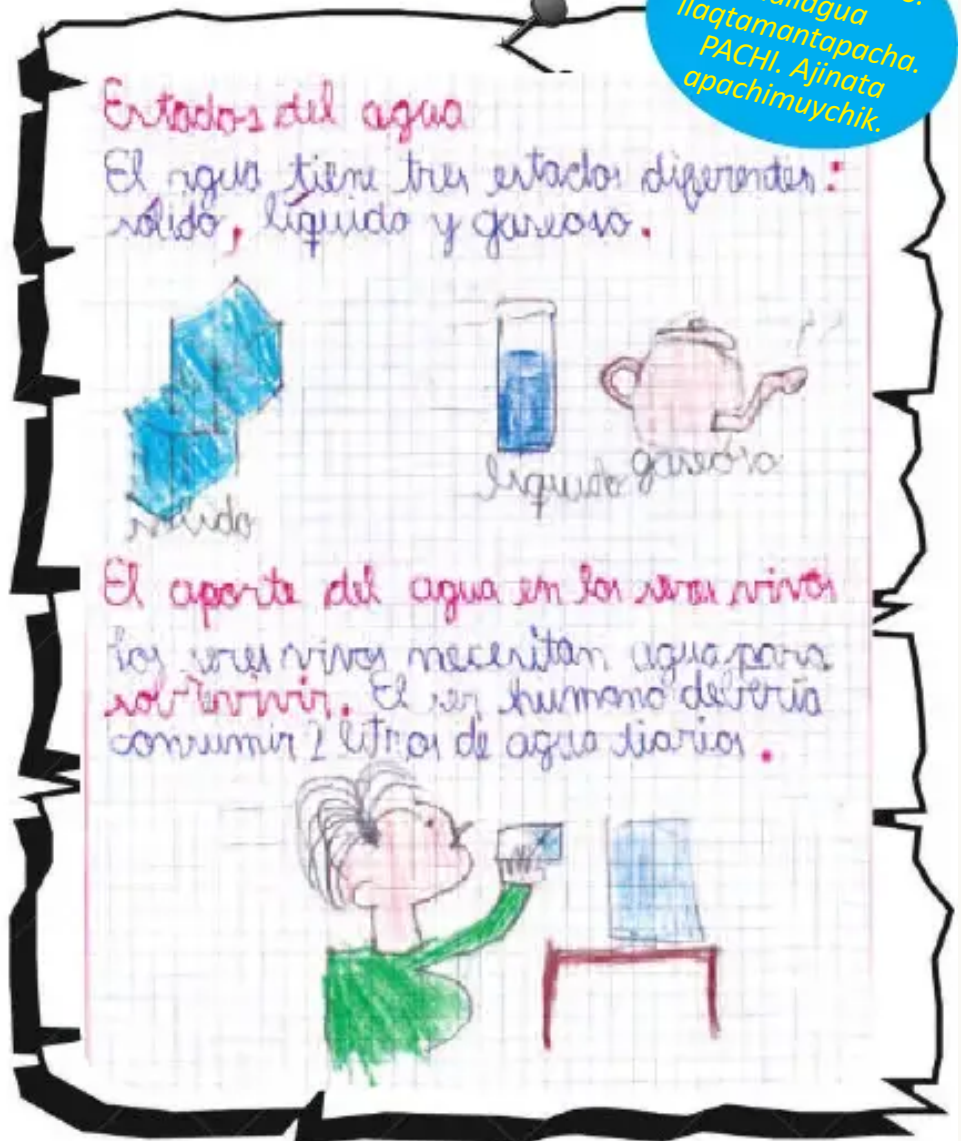 llaqtamantapacha.
PACHI. Ajinata
apachimuychik.
Estados del agua
El agua tiene tres estados diferentes:
sólido, líquido y gaseoso.
sólido
líquido
gaseoso
El aporte del agua en los seres vivos
los seres vivos necesitan agua para
sobrevivir. El ser humano debería
consumir 2 litros de agua diarios.